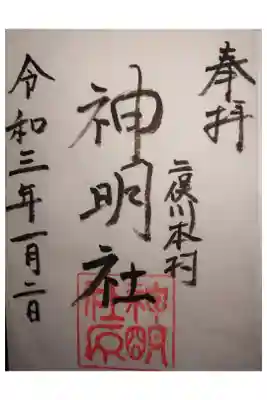 奉拝
二俣川本村
神明社
令和三年一月二日
神明
社印